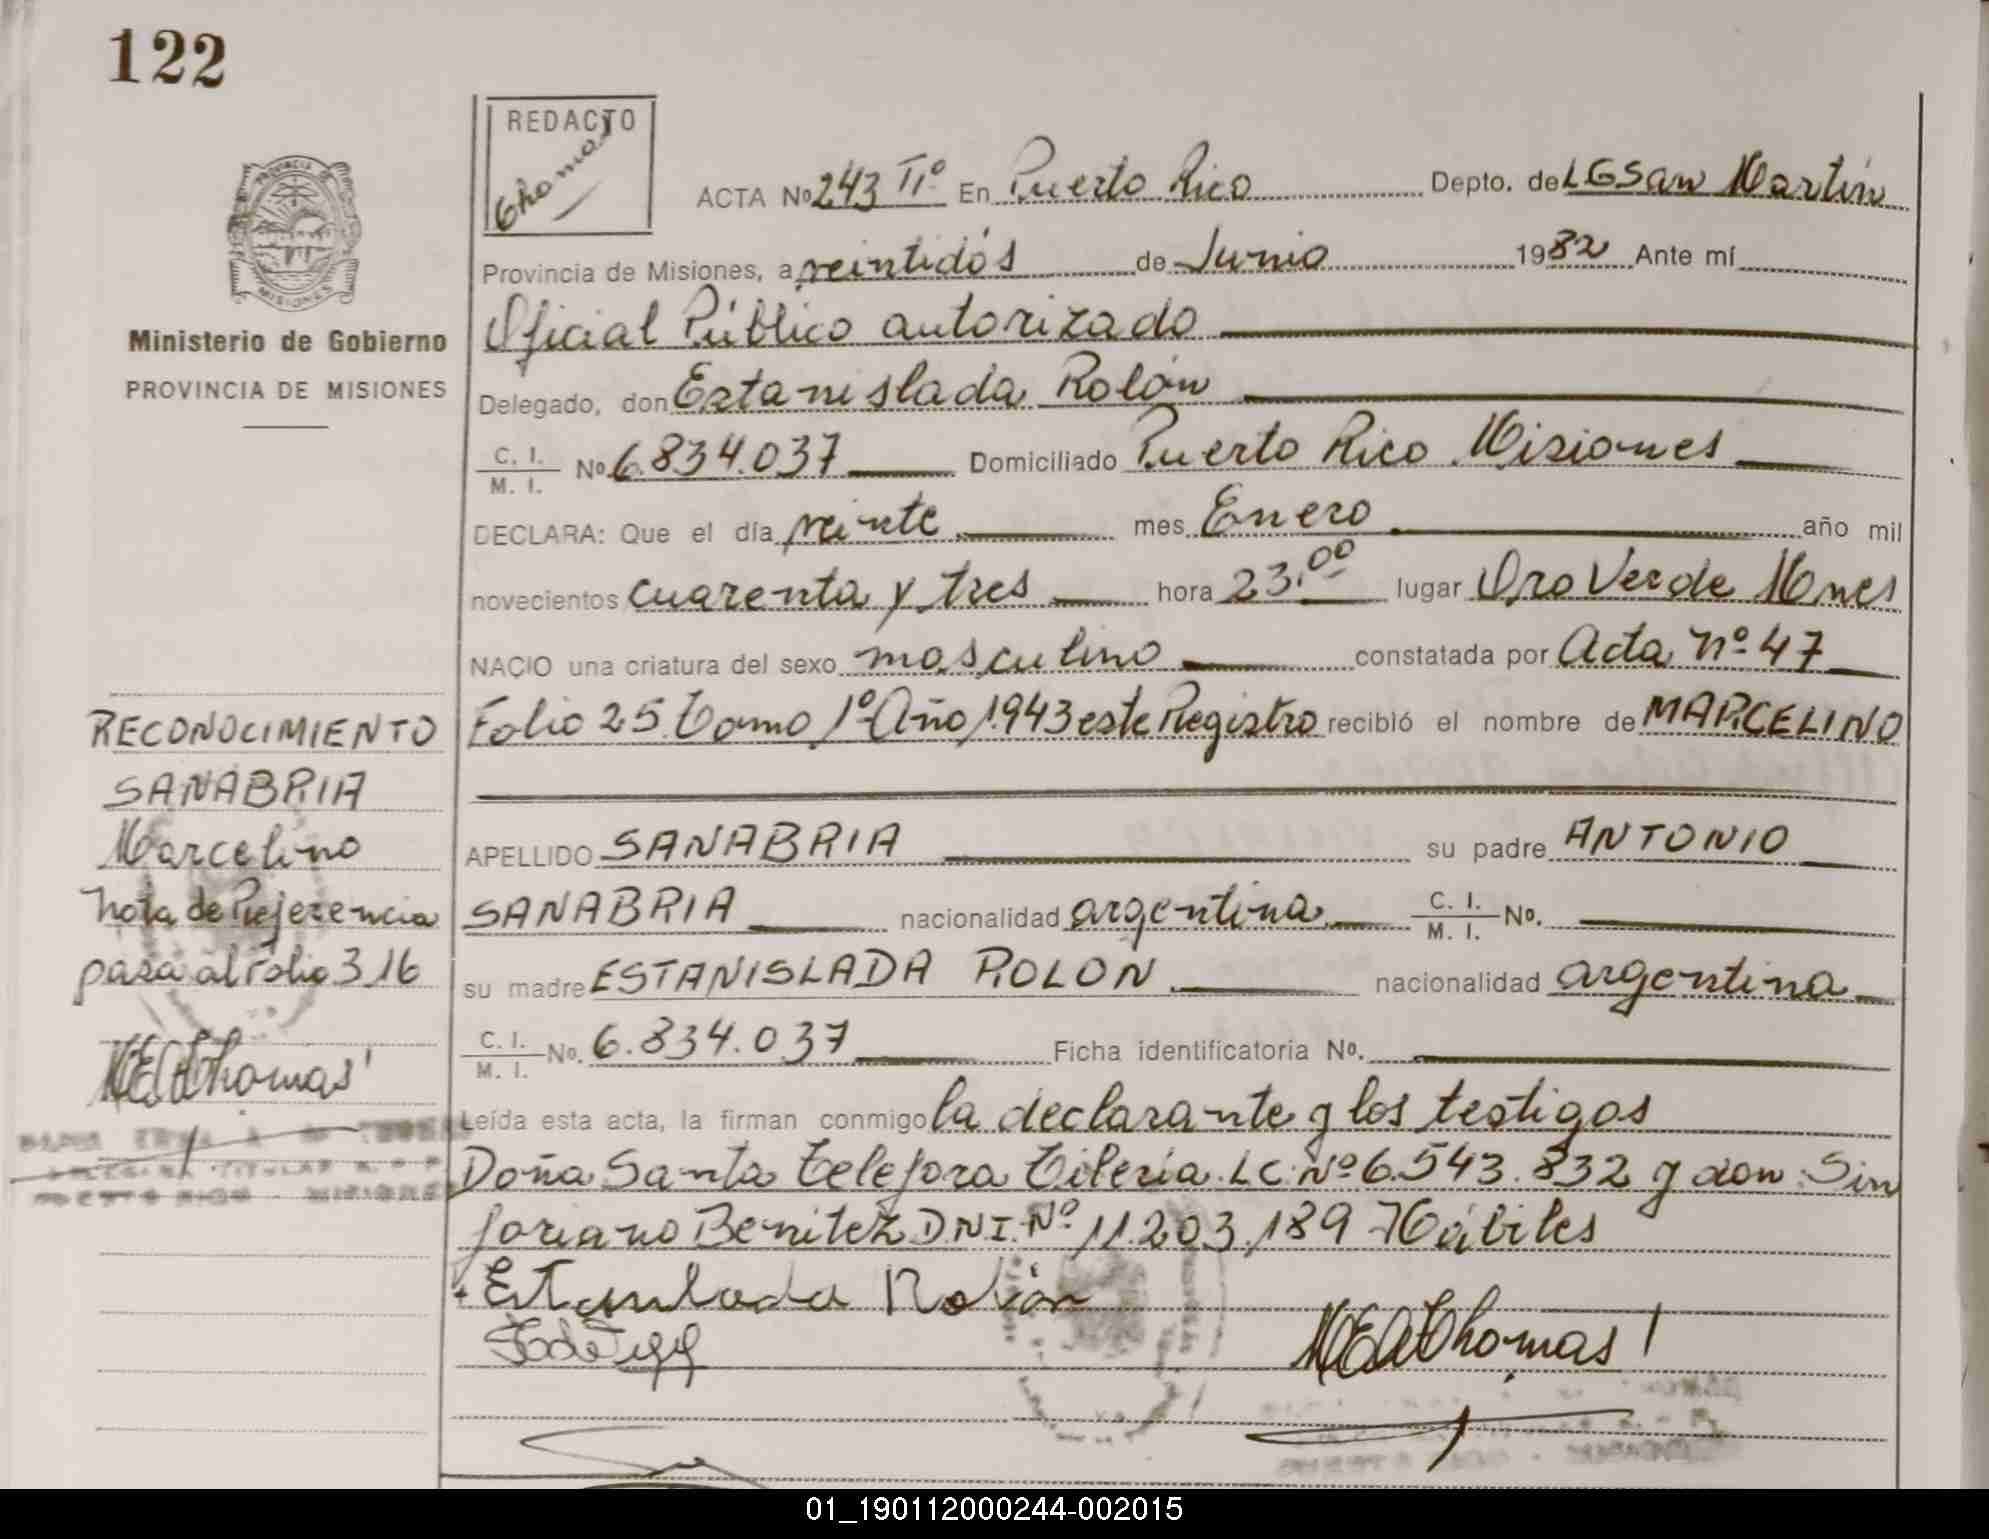 122
REDACTO
Thomas
ACTA Nº 243 Tº En Puerto Rico Depto. de LGSan Martín
PROVINCIA DE
MISIONES
Provincia de Misiones, a veintidós de Junio 1982 Ante mí
Oficial Público autorizado
Ministerio de Gobierno
PROVINCIA DE MISIONES
Delegado, don Estanislada Rolón
C. I. / M. I. Nº 6.834.037 Domiciliado Puerto Rico Misiones
DECLARA: Que el día veinte mes Enero año mil
novecientos cuarenta y tres hora 23,00 lugar Oro Verde Mnes
NACIO una criatura del sexo masculino constatada por Acta nº 47
Folio 25 Tomo 1º Año 1943 este Registro recibió el nombre de MARCELINO
APELLIDO SANABRIA su padre ANTONIO
SANABRIA nacionalidad argentina C. I. / M. I. Nº.
su madre ESTANISLADA ROLON nacionalidad argentina
C. I. / M. I. No. 6.834.037 Ficha identificatoria No.
Leída esta acta, la firman conmigo la declarante y los testigos
Doña Santa Telefora Tileria LC.Nº 6.543.832 y don Sin
foriano Benitez DNI.Nº 11.203.189 Hábiles
Estanislada Rolón
MEAThomas
RECONOCIMIENTO
SANABRIA
Marcelino
Nota de Referencia
pasa al Folio 316
MEAThomas
PUERTO RICO - MISIONES
01_190112000244-002015